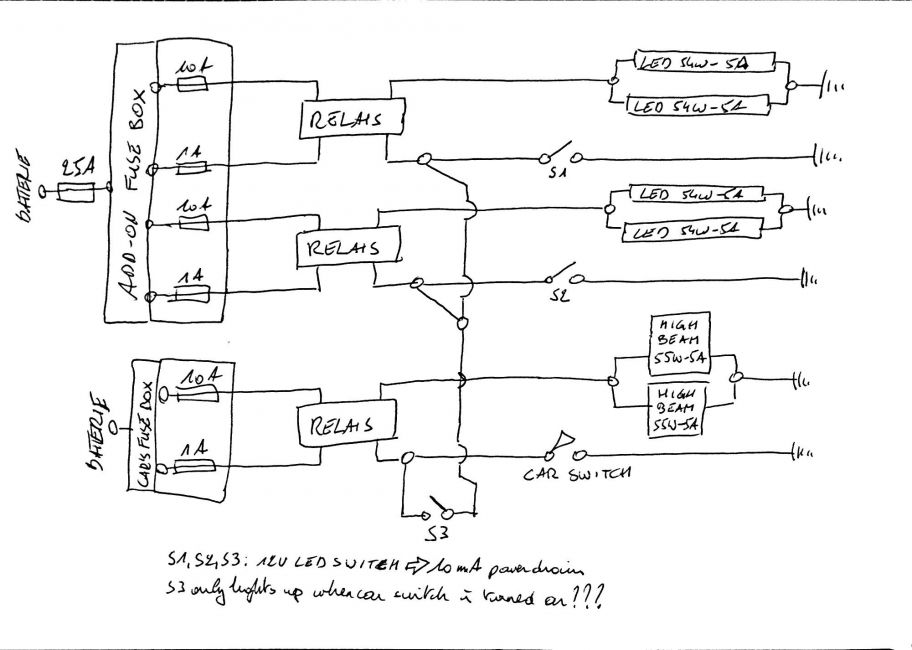 10A
LED 54W-5A
LED 54W-5A
RELAIS
1A
S1
25A
BATERIE
ADD-ON FUSE BOX
10A
LED 54W-5A
LED 54W-5A
RELAIS
1A
S2
HIGH
BEAM
55W-5A
10A
HIGH
BEAM
55W-5A
RELAIS
BATERIE
CAR'S FUSE BOX
1A
CAR SWITCH
S3
S1, S2, S3: 12V LED SWITCH ⇒ 10mA powerdrain
S3 only lights up when car switch is turned on???